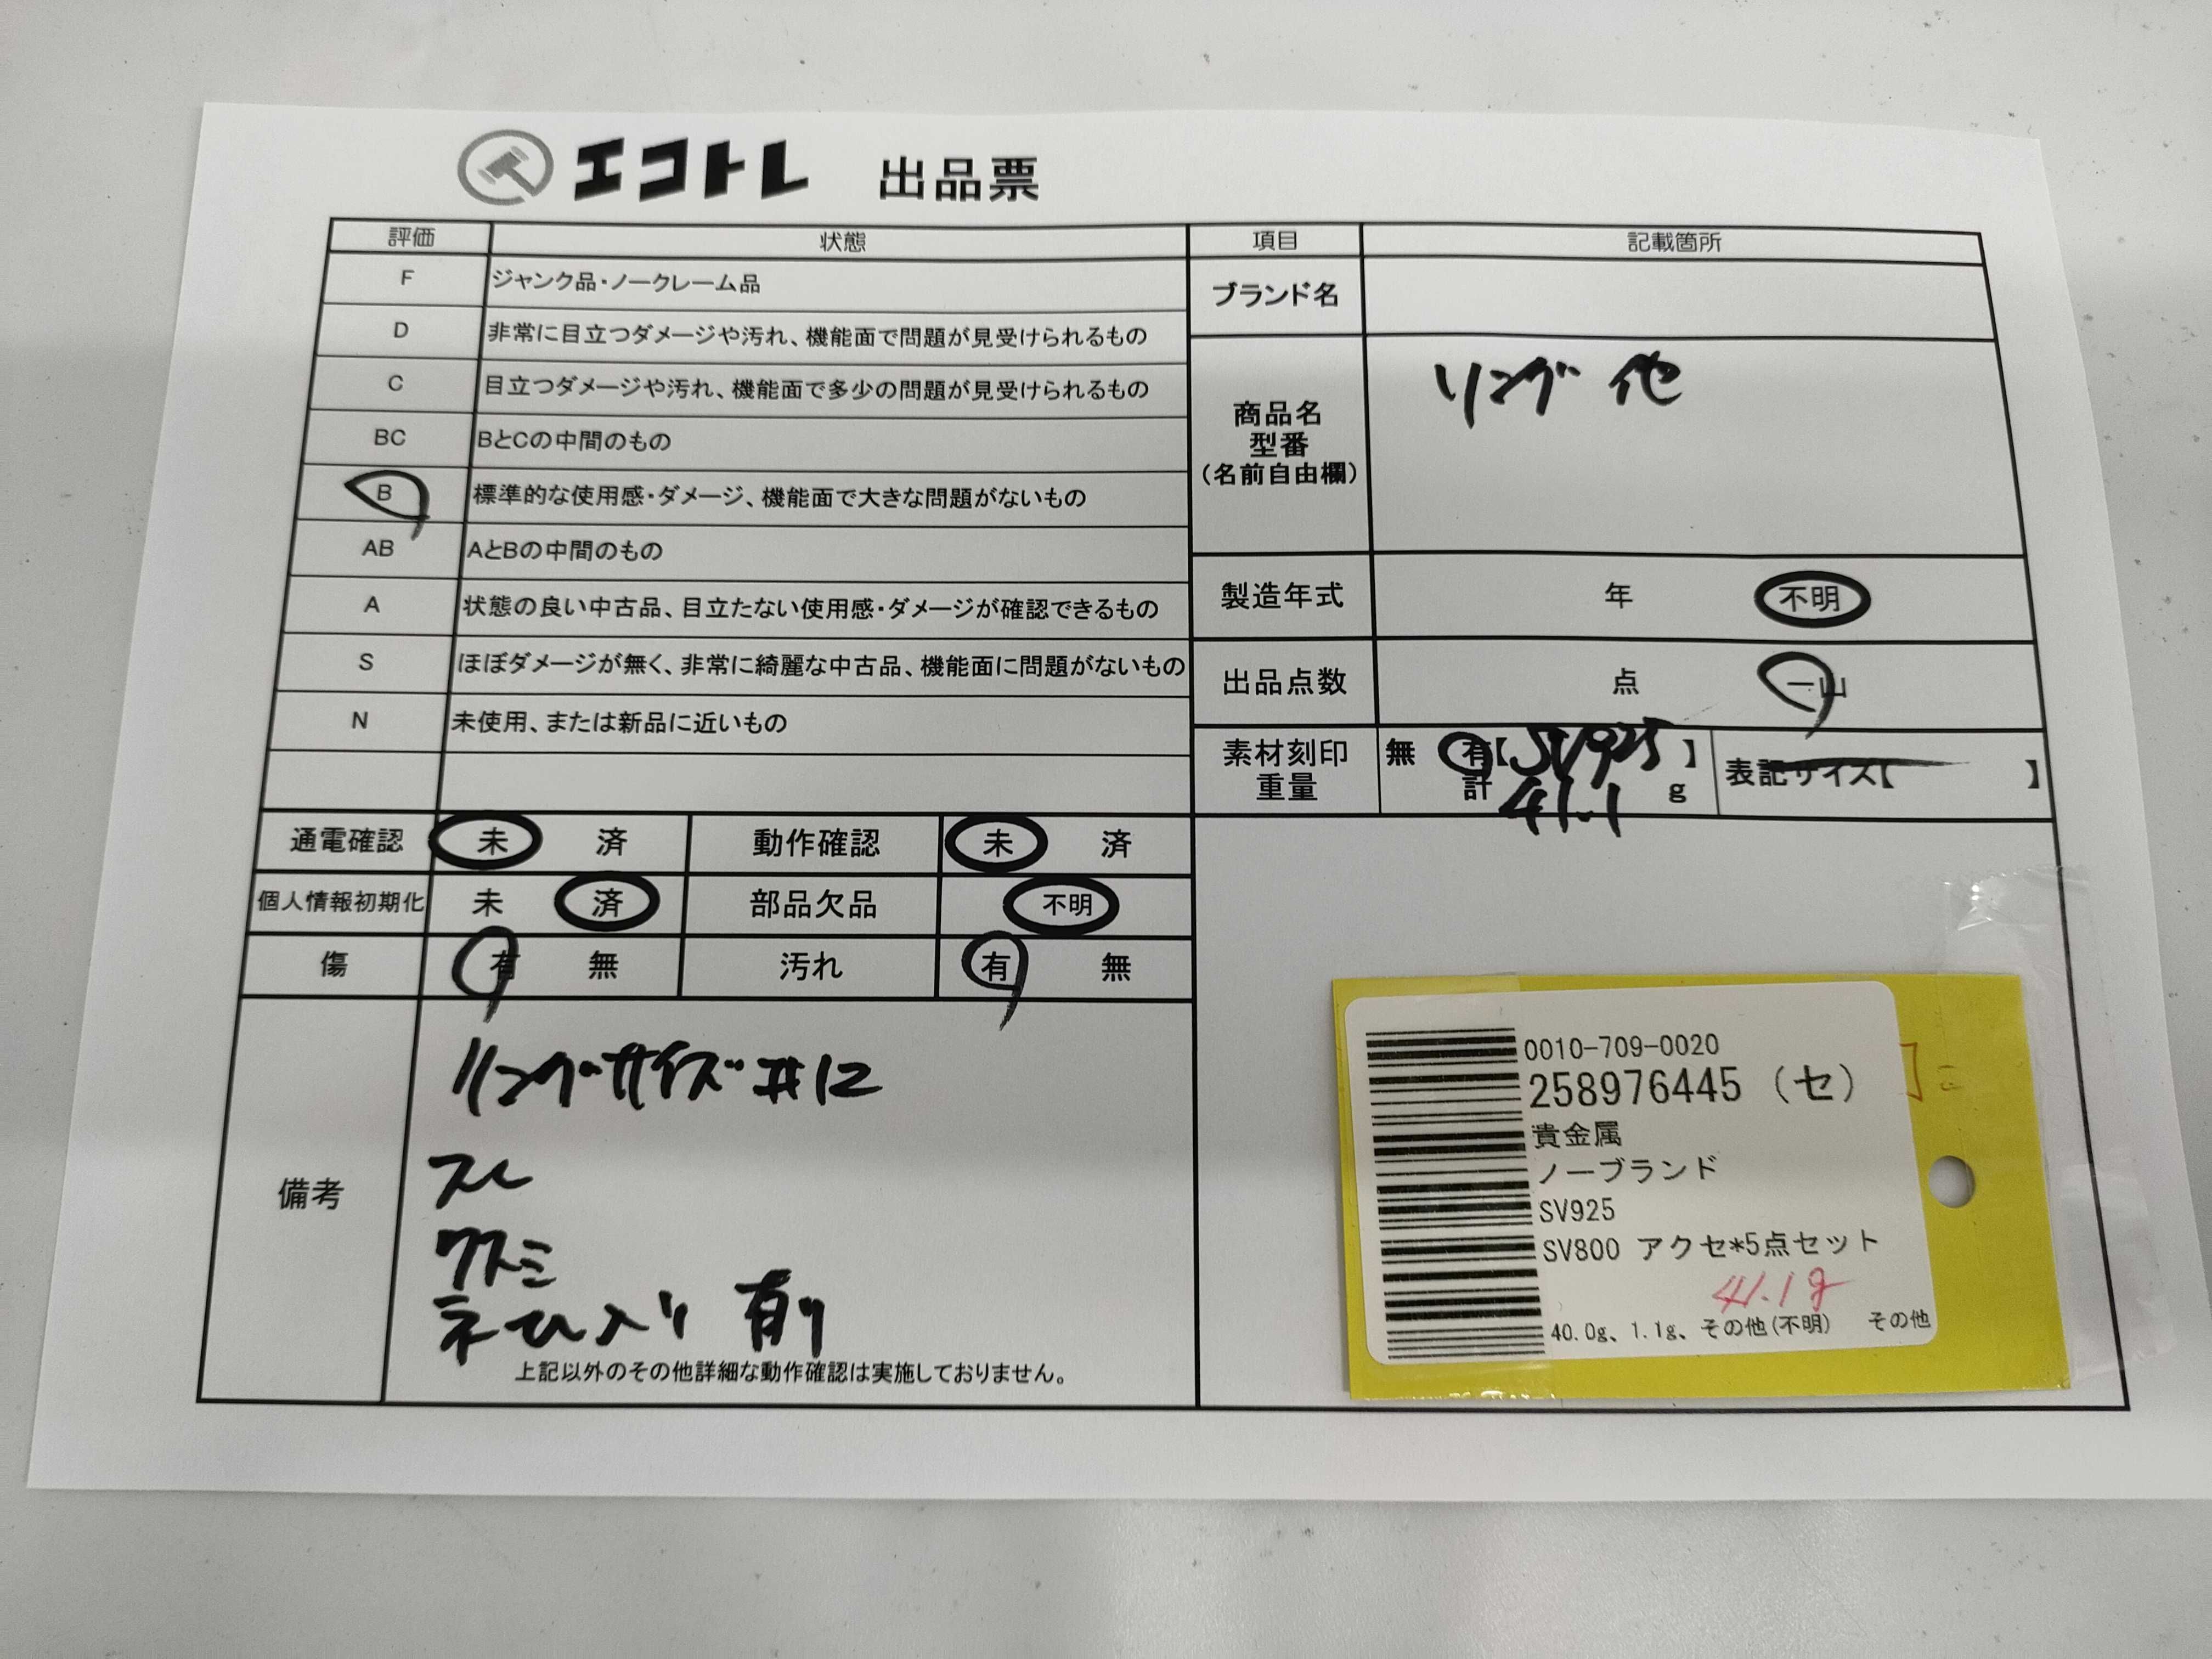 エコトレ 出品票
評価 状態 項目 記載箇所
F ジャンク品・ノークレーム品
D 非常に目立つダメージや汚れ、機能面で問題が見受けられるもの
C 目立つダメージや汚れ、機能面で多少の問題が見受けられるもの
BC BとCの中間のもの
B 標準的な使用感・ダメージ、機能面で大きな問題がないもの
AB AとBの中間のもの
A 状態の良い中古品、目立たない使用感・ダメージが確認できるもの
S ほぼダメージが無く、非常に綺麗な中古品、機能面に問題がないもの
N 未使用、または新品に近いもの
ブランド名
商品名
型番
(名前自由欄)
リング 他
製造年式 年 不明
出品点数 点 一山
素材刻印 無 有【SV925】
重量 計 41.1 g
表記サイズ【 】
通電確認 未 済 動作確認 未 済
個人情報初期化 未 済 部品欠品 不明
傷 有 無 汚れ 有 無
備考
リングサイズ#12
スレ
クスミ
ネーム入り 有り
上記以外のその他詳細な動作確認は実施しておりません。
0010-709-0020
258976445 (セ)
貴金属
ノーブランド
SV925
SV800 アクセ*5点セット
41.1g
40.0g、1.1g、その他(不明) その他